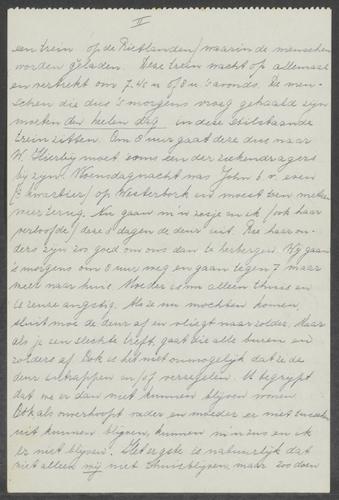 II
een trein op de Rietlanden/waarin de menschen
worden geladen. Deze trein wacht op allemaal
en vertrekt om 7.45 u of 8 u 's avonds. De men-
schen die dus 's morgens vroeg gehaald zijn
moeten den heelen dag in deze stilstaande
trein zitten. Om 8 uur gaat deze dus naar
W. Hierbij moet soms een der ziekendragers
bij zijn. Woensdagnacht was John b.v. even
(3 kwartier) op Westerbork en moest toen meteen
weer terug. Nu gaan m'n zusje en ik /ook haar
verloofde/ deze 8 dagen de deur uit. De
ouders zijn zoo goed om ons dan te herbergen. Wij gaan
's morgens om 8 uur weg en gaan tegen 7 maar
weer naar huis. Moeder is nu alleen thuis en
is zeer angstig. Als ze nu mochten komen,
sluit moe de deur af en vliegt naar zolder. Maar
als je een slechte treft, gaat die alle buren en
zolders af. Ook is het niet onmogelijk dat ze de
deur intrappen en/of verzegelen. U begrijpt
dat we er dan niet kunnen blijven wonen.
Ook als overhoopt vader en moeder er met tusschen
uit kunnen blijven, kunnen m'n zus en ik
er niet blijven. Het ergste is natuurlijk dat
niet alleen wij niet thuisblijven, maar zoo doen